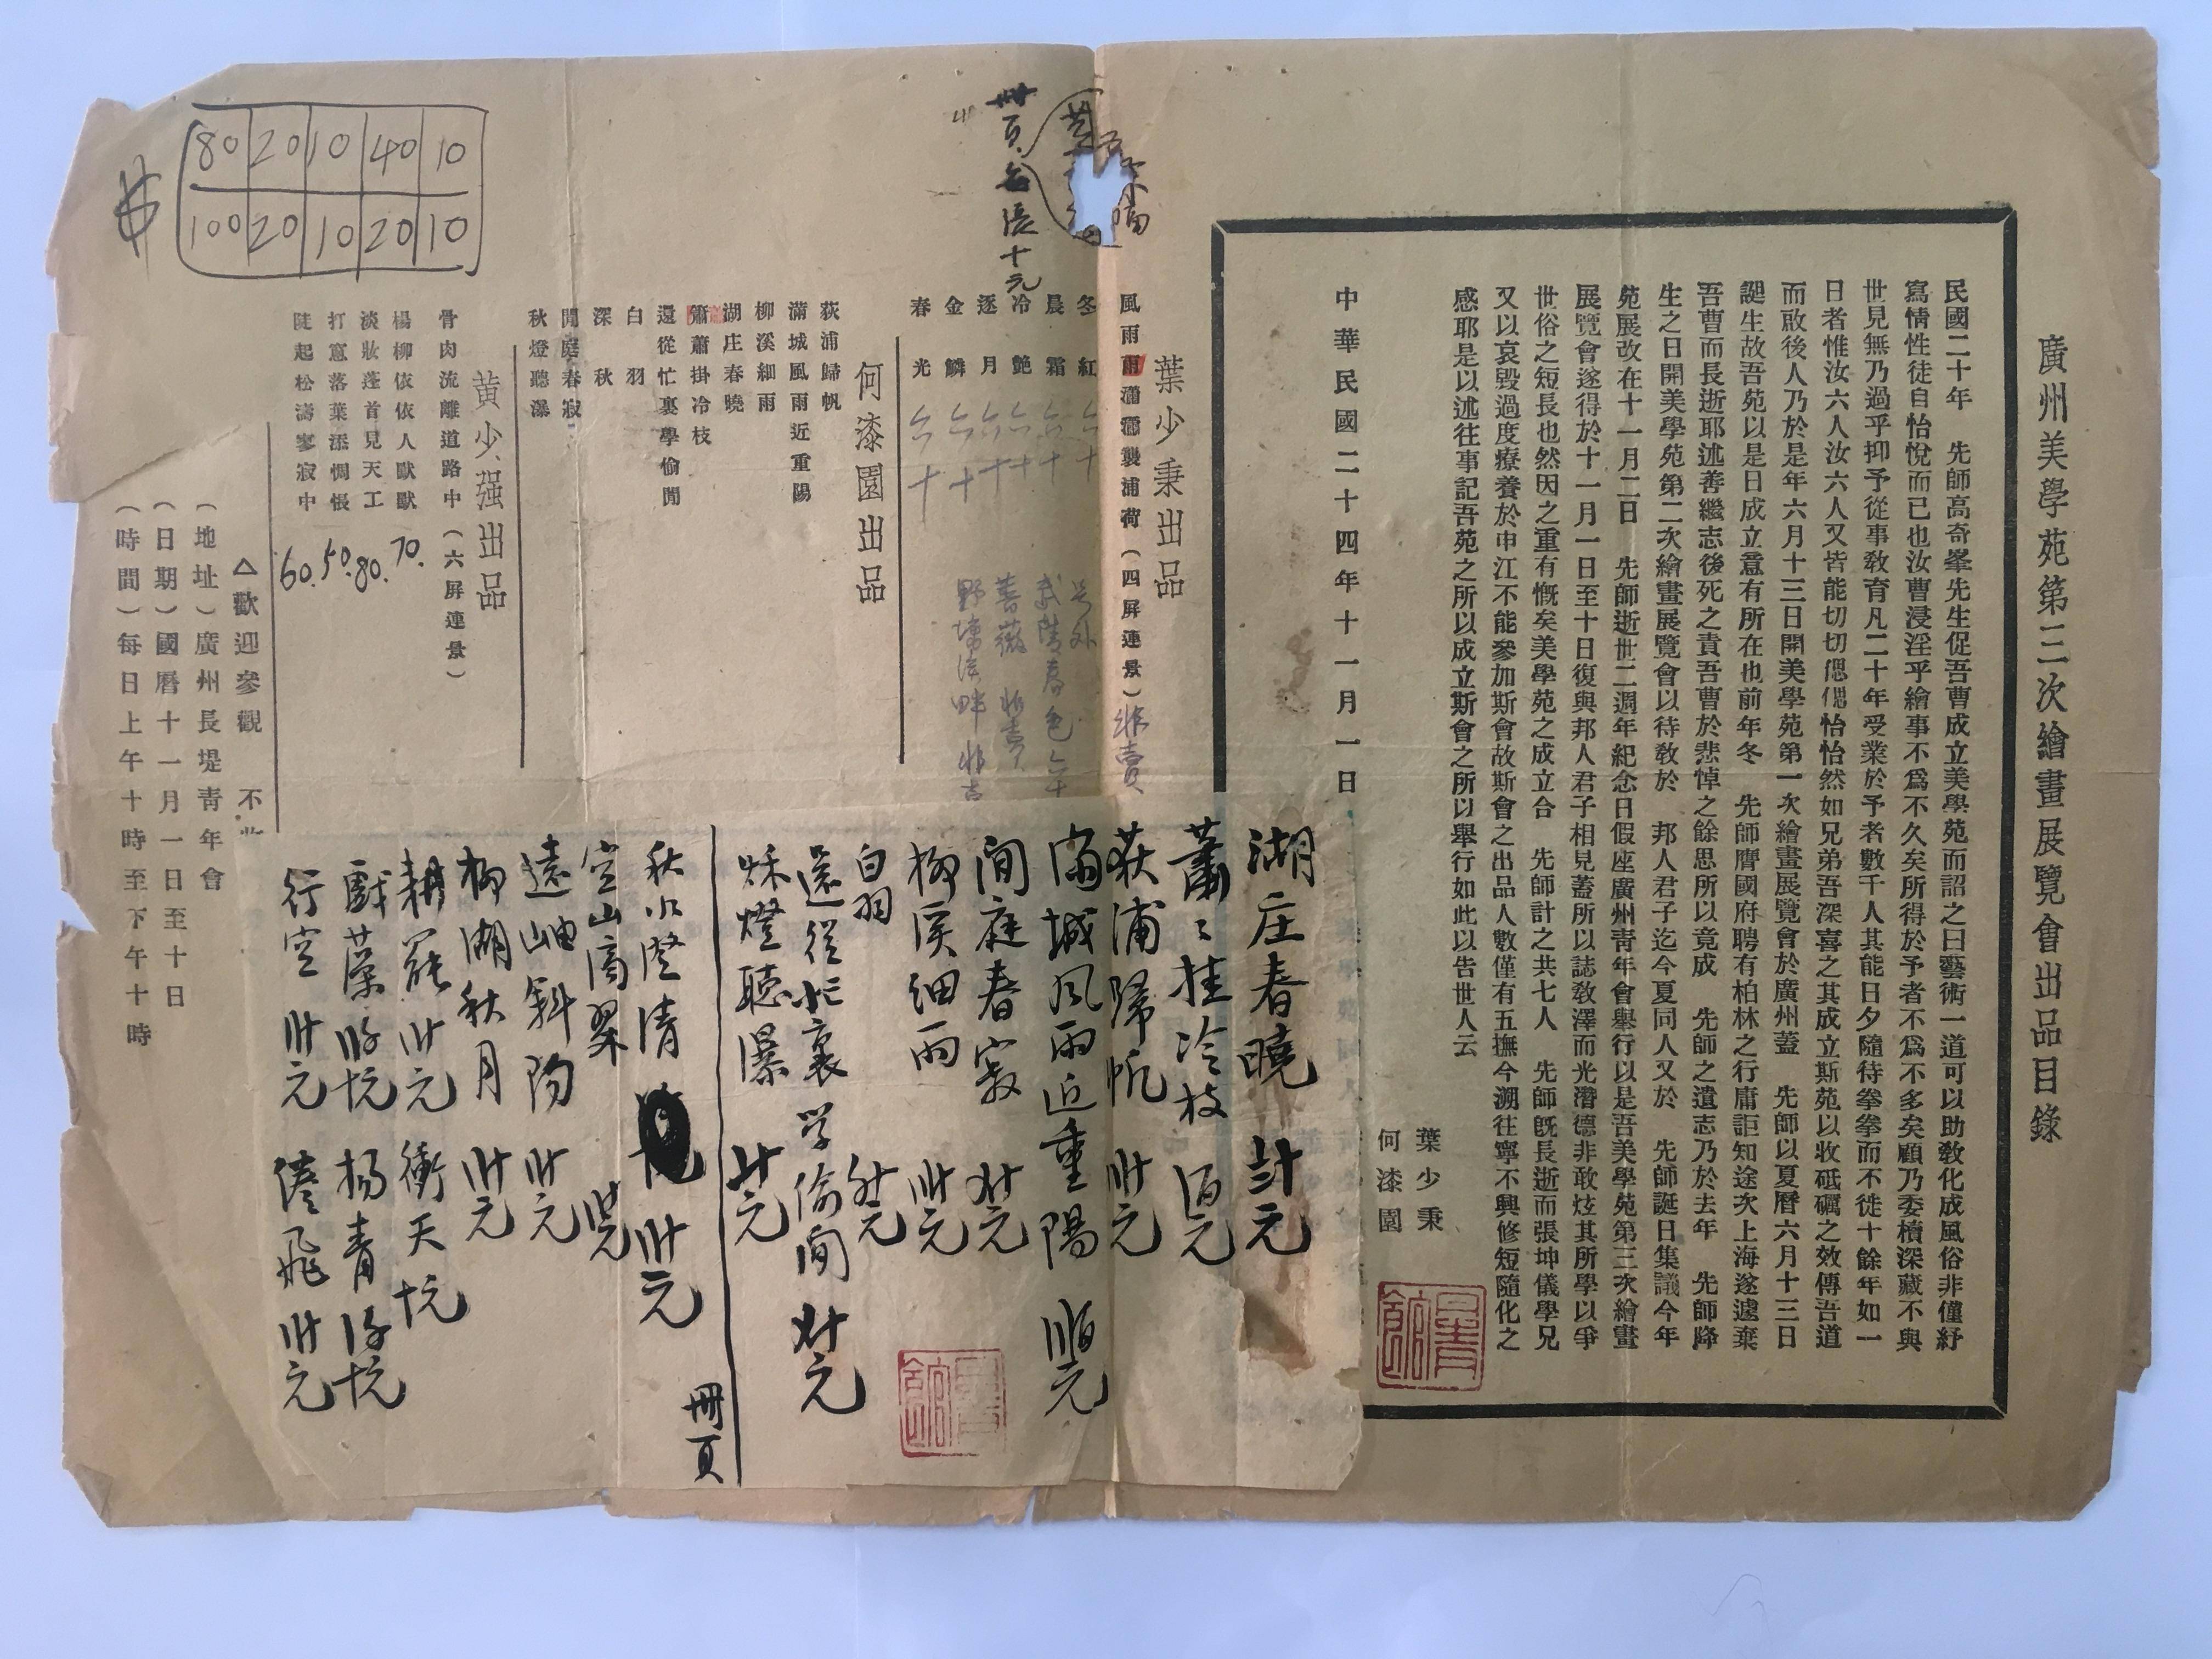 廣州美學苑第三次繪畫展覽會出品目錄
民國二十年　先師高奇峯先生促吾曹成立美學苑而詔之曰藝術一道可以助敎化成風俗非僅紓
寫情性徒自怡悅而已也汝曹浸淫乎繪事不爲不久矣所得於予者不爲不多矣顧乃委櫝深藏不與
世見無乃過乎抑予從事敎育凡二十年受業於予者數千人其能日夕隨待拳拳而不徙十餘年如一
日者惟汝六人汝六人又皆能切切偲偲怡怡然如兄弟吾深喜之其成立斯苑以收砥礪之效傳吾道
而啟後人乃於是年六月十三日開美學苑第一次繪畫展覽會於廣州蓋　先師以夏曆六月十三日
誕生故吾苑以是日成立意有所在也前年冬　先師膺國府聘有柏林之行庸詎知途次上海遂遽棄
吾曹而長逝耶述善繼志後死之責吾曹於悲悼之餘思所以竟成　先師之遺志乃於去年　先師降
生之日開美學苑第二次繪畫展覽會以待敎於　邦人君子迄今夏同人又於　先師誕日集議今年
苑展改在十一月二日　先師逝世二週年紀念日假座廣州靑年會舉行以是吾美學苑第三次繪畫
展覽會遂得於十一月一日至十日復與邦人君子相見蓋所以誌敎澤而光潛德非敢炫其所學以爭
世俗之短長也然因之重有慨矣美學苑之成立合　先師計之共七人　先師旣長逝而張坤儀學兄
又以哀毀過度療養於申江不能參加斯會故斯會之出品人數僅有五撫今溯往寧不興修短隨化之
感耶是以述往事記吾苑之所以成立斯會之所以舉行如此以告世人云
葉少秉
何漆園
中華民國二十四年十一月一日
葉少秉出品
風雨雨瀟瀟襲浦荷（四屏連景）非賣
冬紅
晨霜
冷艶
逐月
金鱗
春光
号外
武陵春色
薔薇　非賣
冊頁每張十元
何漆園出品
荻浦歸帆
滿城風雨近重陽
柳溪細雨
湖庄春曉
簫蕭掛冷枝
還從忙裏學偷閒
白羽
深秋
閒庭春寂
秋燈聽瀑
黃少强出品
骨肉流離道路中（六屏連景）
楊柳依依人歐歐 70.
淡妝蓬首見天工 80.
打窻落葉添惆悵 50.
陡起松濤寥寂中 60.
△歡迎參觀　不
（地址）廣州長堤靑年會
（日期）國曆十一月一日至十日
（時間）每日上午十時至下午十時
$
80 20 10 40 10
100 20 10 20 10
湖庄春曉
蕭々挂冷枝　百元
荻浦歸帆　卅元
滿城風雨近重陽
閒庭春寂
柳溪細雨　卅元
白羽
還從忙裏學偷閒
秌燈聽瀑　廿元
冊頁
秋水澄清　卅元
空山滴翠
遠岫斜陽　卅元
柳湖秋月　卅元
耕罷　卅元　衝天
戲藻　楊青
行空　卅元　倦飛　卅元